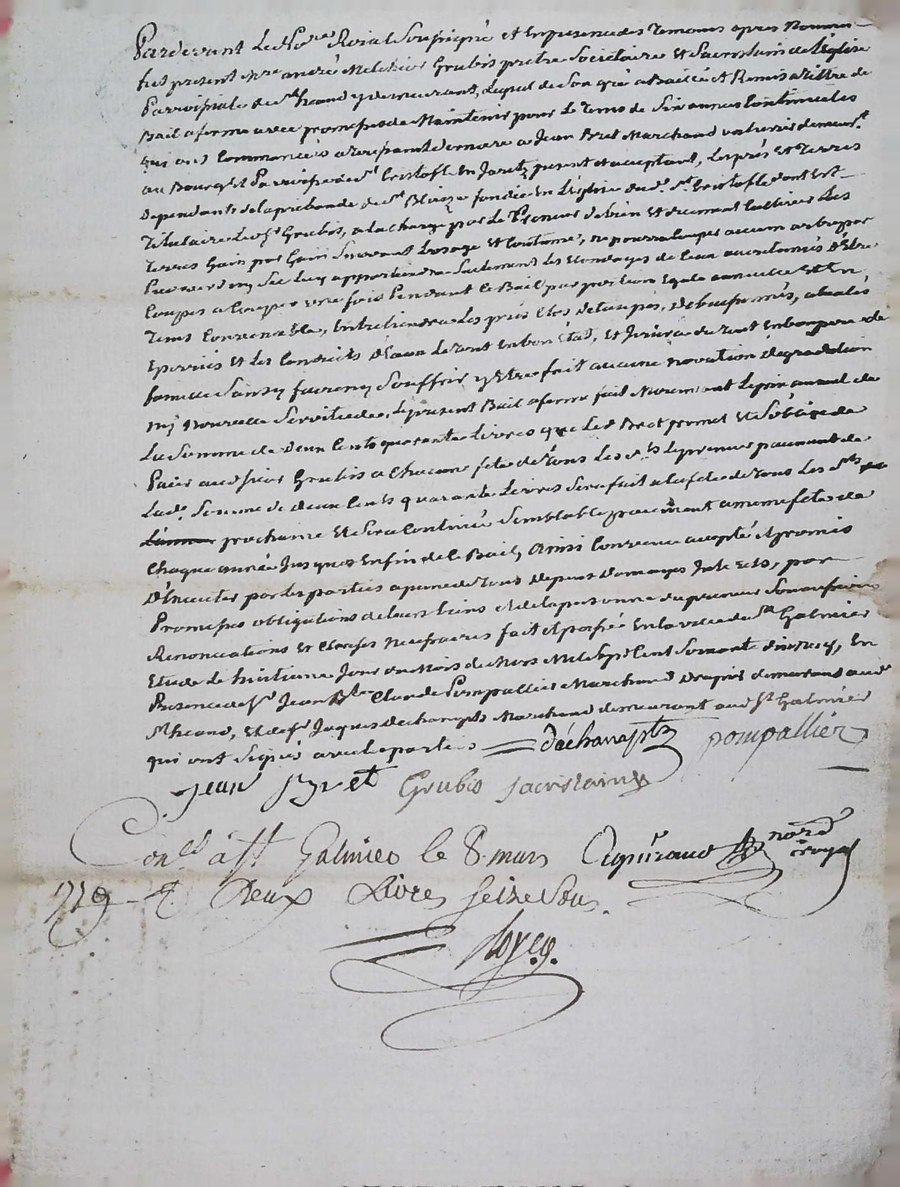 Pardevant Le No.re Roial Soussigné et En presence des Temoins apres Nommés
fut present m.re andré Melchior Grubis pretre Societaire Et Sacristain de L'Eglise
Parroissiale de S.t heand y demeurant, Lequel de Son gré a baillé et Remis a tiltre de
Bail a ferme avec promesse de Maintenir pour Le Tems de Six années Continuelles
qui ont Commencées a la Toussaint derniere a Jean Bret Marchand demeur.t
au Bourg et Parroisse de S.t Cristofle En Jarets present et acceptant, Les prés Et Terres
Dependants de la prebande de S.t Blaize fondée En L'Eglise du d. S.t Cristofle dont Est
Titulaire Led.s.r Grubis, a la charge par Le Preneur de bien Et duement Cultiver Les
Terres Gain par Gain Suivant L'usage Et Coutume, ne pourra Couper aucun arbre par
pied Luy appartiendra Seulement Les Emondages de Ceux accoutumés D'Etre
Coupés a Couper une fois Pendant le Bail par portion Egale annuelle Et En
Tems Convenable, Entretiendra Les prés Clos de buissonnés,
Eperriés Et Les Conduits D'Eaux Le tout En bon Etat, Et Jouira du tout En bon pere de
famille Sans y faire ny Souffrir y Etre fait aucune novation degradation
ny Nouvelle Servitude, Le present Bail a ferme fait Moyennant Le prix annuel de
La Somme de deux Cents quarante Livres que Led. Bret promet Et S'oblige de
Paier aud. sieur Grubis a Chacune fete de Tous Les S.ts Le premier paiement de
Lad.e Somme de deux Cents quarante Livres Sera fait a la fete de Tous Les S.ts
prochaine Et Sera Continué Semblable paiement a meme fete de
Chaque année Jusques En fin de Ce Bail, Ainsi Convenu accepté et promis
D'Executer par les parties a peine de Tous Depens Domages Interets, par
Promesses obligations de leurs biens et de la personne du preneur
Renonciations Et Clauses Necessaires fait Et passé En la ville de S.t Galmier
Etude Le huitieme Jour du Mois de Mars Mil Sept Cent Soixante dix neuf, En
Presence de S.r Jean B.te Claude Pompallier Marchand Drapier demeurant aud.
S.t heand, Et de S.r Jaques Dechampts Marchand demeurant aud. S.t Galmier
qui ont Signés avec Les parties
déchampts pompallier
Jean Bret Grubis Sacristain
Con.lé à S.t Galmier le 8. mars
not.re royal
779 R. Deux Livres Seize Sous.